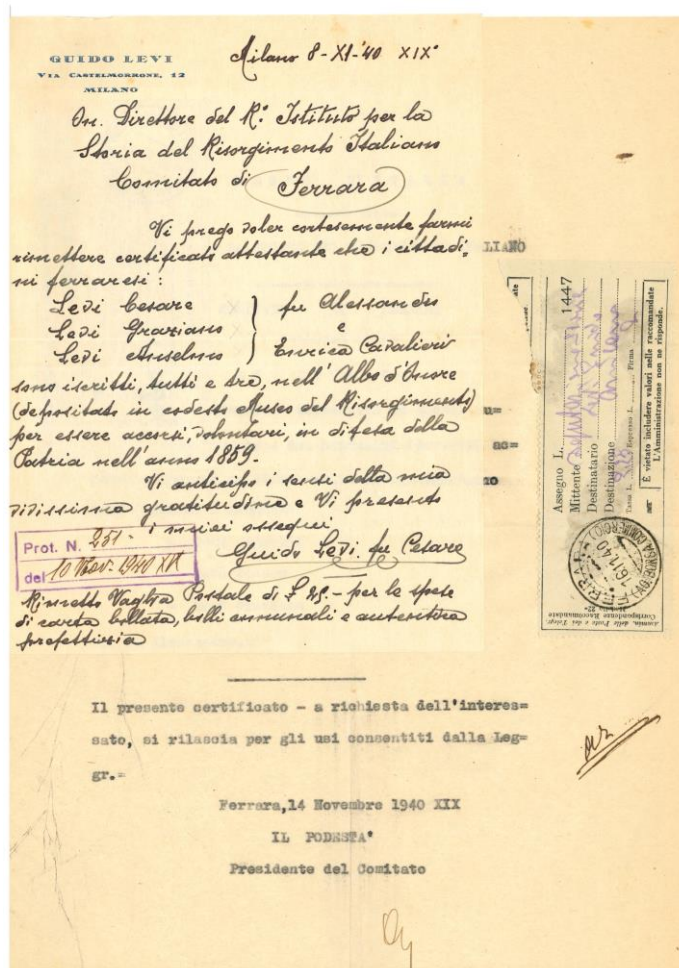 GUIDO LEVI
VIA CASTELMORRONE, 12
MILANO
Milano 8-XI-'40 XIX°
On. Direttore del R°. Istituto per la
Storia del Risorgimento Italiano
Comitato di Ferrara
Vi prego voler cortesemente farmi
rimettere certificato attestante che i cittadi=
ni ferraresi:
Levi Cesare } fu Alessandro
Levi Graziano } e
Levi Anselmo } Enrica Cavalieri
sono iscritti, tutti e tre, nell'Albo d'Onore
(depositato in codesto Museo del Risorgimento)
per essere accorsi, volontari, in difesa della
Patria nell'anno 1859.
Vi anticipo i sensi della mia
vivissima gratitudine e Vi presento
i miei ossequi
Guido Levi fu Cesare
Prot. N. 251.
del 10 Nov. 1940 XIX
Rimetto Vaglia Postale di £ 25.- per le spese
di carta bollata, bolli comunali e autentica
prefettizia
LIANO
u=
ao=
no
1447
Assegno L.
Mittente Deputazione
Destinatario Levi Guido
Destinazione
Tassa L. Espresso L. Firma
È vietato includere valori nelle raccomandate
L'Amministrazione non ne risponde.
FERRARA
16.11.40
Ammin. delle Poste e dei Telegr.
Corrispondenze Raccomandate
Il presente certificato - a richiesta dell'interes=
sato, si rilascia per gli usi consentiti dalla Leg=
gr.=
Ferrara,14 Novembre 1940 XIX
IL PODESTA'
Presidente del Comitato